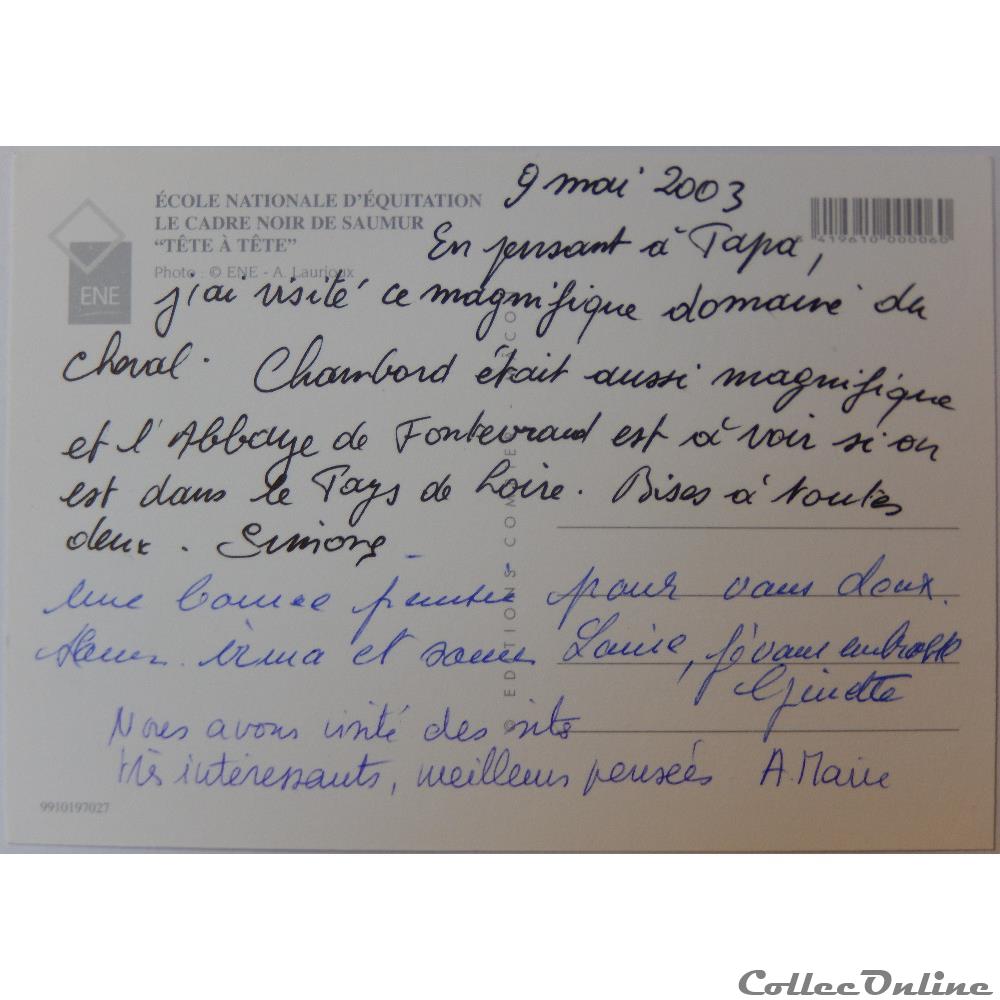 9 mai 2003
ÉCOLE NATIONALE D'ÉQUITATION
LE CADRE NOIR DE SAUMUR
"TÊTE À TÊTE"
Photo : © ENE - A. Laurioux
ENE
419610 000060
En pensant à Papa,
j'ai visité ce magnifique domaine du
cheval. Chambord était aussi magnifique
et l'Abbaye de Fontevraud est à voir si on
est dans le Pays de Loire. Bises à toutes
deux. Simone
Une bonne pensée pour vous deux.
Irma et soeur Louise, je vous embrasse
Ginette
Nous avons visité des sites
très intéressants, meilleurs pensées A. Marie
© EDITIONS COMBIER
9910197027
CollecOnline